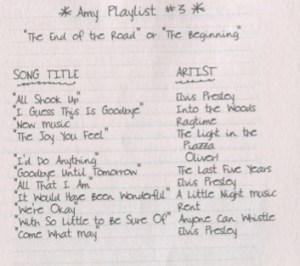 * Amy Playlist #3 *
"The End of the Road" or "The Beginning"
SONG TITLE ARTIST
"All Shook Up" Elvis Presley
"I Guess This Is Goodbye" Into the Woods
"New music" Ragtime
"The Joy You Feel" The Light in the
Piazza
"I'd Do Anything" Oliver!
"Goodbye Until Tomorrow" The Last Five Years
"All That I Am" Elvis Presley
"It Would Have Been Wonderful" A Little Night Music
"We're Okay" Rent
"With So Little to Be Sure Of" Anyone Can Whistle
"Come What May" Elvis Presley